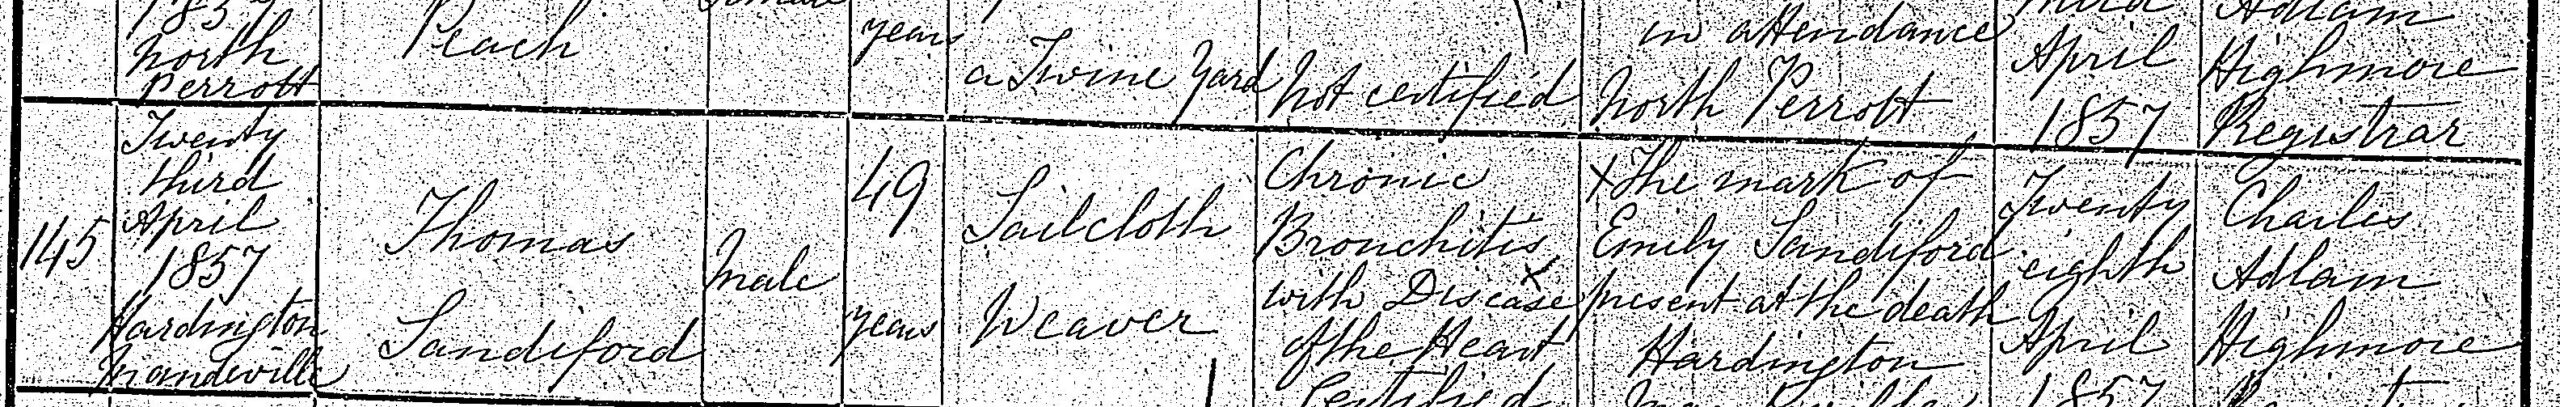 1857
North
Perrott
Peach
years
a Twine Yard
Not certified
in attendance
North Perrott
April
1857
Adlam
Highmore
Registrar
145
Twenty
third
April
1857
Hardington
Mandeville
Thomas
Sandiford
Male
49
years
Sailcloth
Weaver
Chronic
Bronchitis
with Disease
of the Heart
Certified
X The mark of
Emily Sandiford
present at the death
Hardington
Mandeville
Twenty
eighth
April
1857
Charles
Adlam
Highmore
Registrar